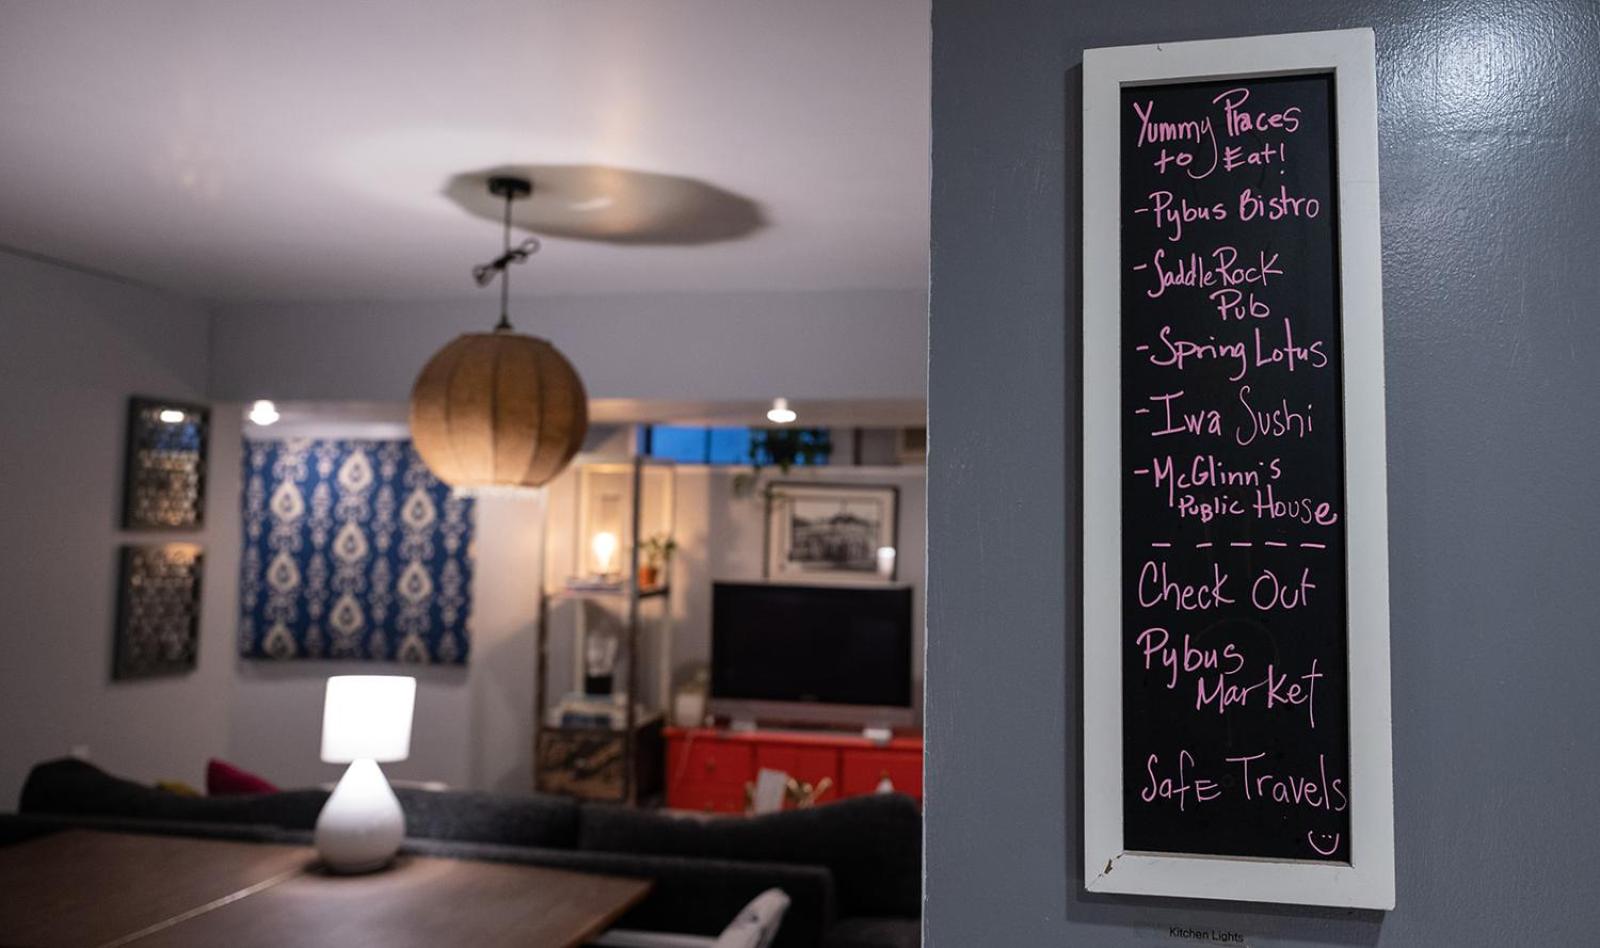 Yummy Places
to Eat!
- Pybus Bistro
- Saddle Rock
Pub
- Spring Lotus
- Iwa Sushi
- McGlinn's
Public House
- - - - -
Check Out
Pybus
Market
Safe Travels
Kitchen Lights